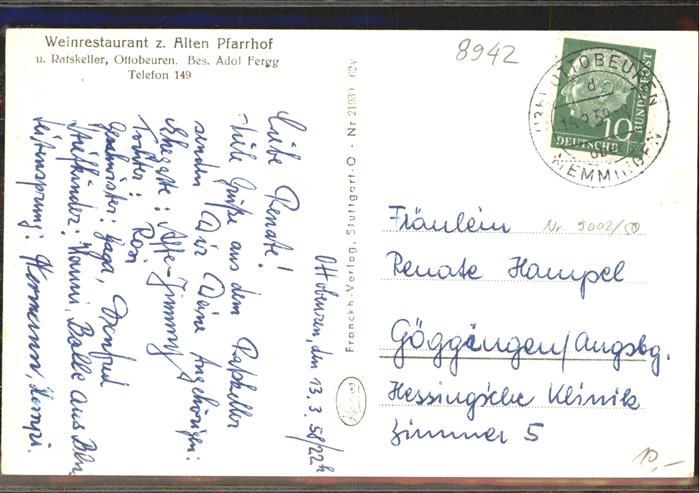 Weinrestaurant z. Alten Pfarrhof
u. Ratskeller, Ottobeuren. Bes. Adol Fergg
Telefon 149
8942
OTTOBEUREN
MEMMINGEN
10
DEUTSCHE
BUNDESPOST
Ottobeuren, den 13. 3. 58/22h
Liebe Renate!
Viele Grüße aus dem Ratskeller
senden Dir Deine Angehörigen:
Ehegatte: Alfe-Jimmy
Tochter: Rosi
Geschwister: Gaga, Manfred
Stiefkinder: Nanni, Balle aus Bln
Seitensprung: Hermann, Hempi.
Franckh-Verlag, Stuttgart-O - Nr 2(193) 62v
Fräulein Nr. 9002/50
Renate Hampel
Göggingen/Augsbg.
Hessing'sche Klinik
Zimmer 5
10,-